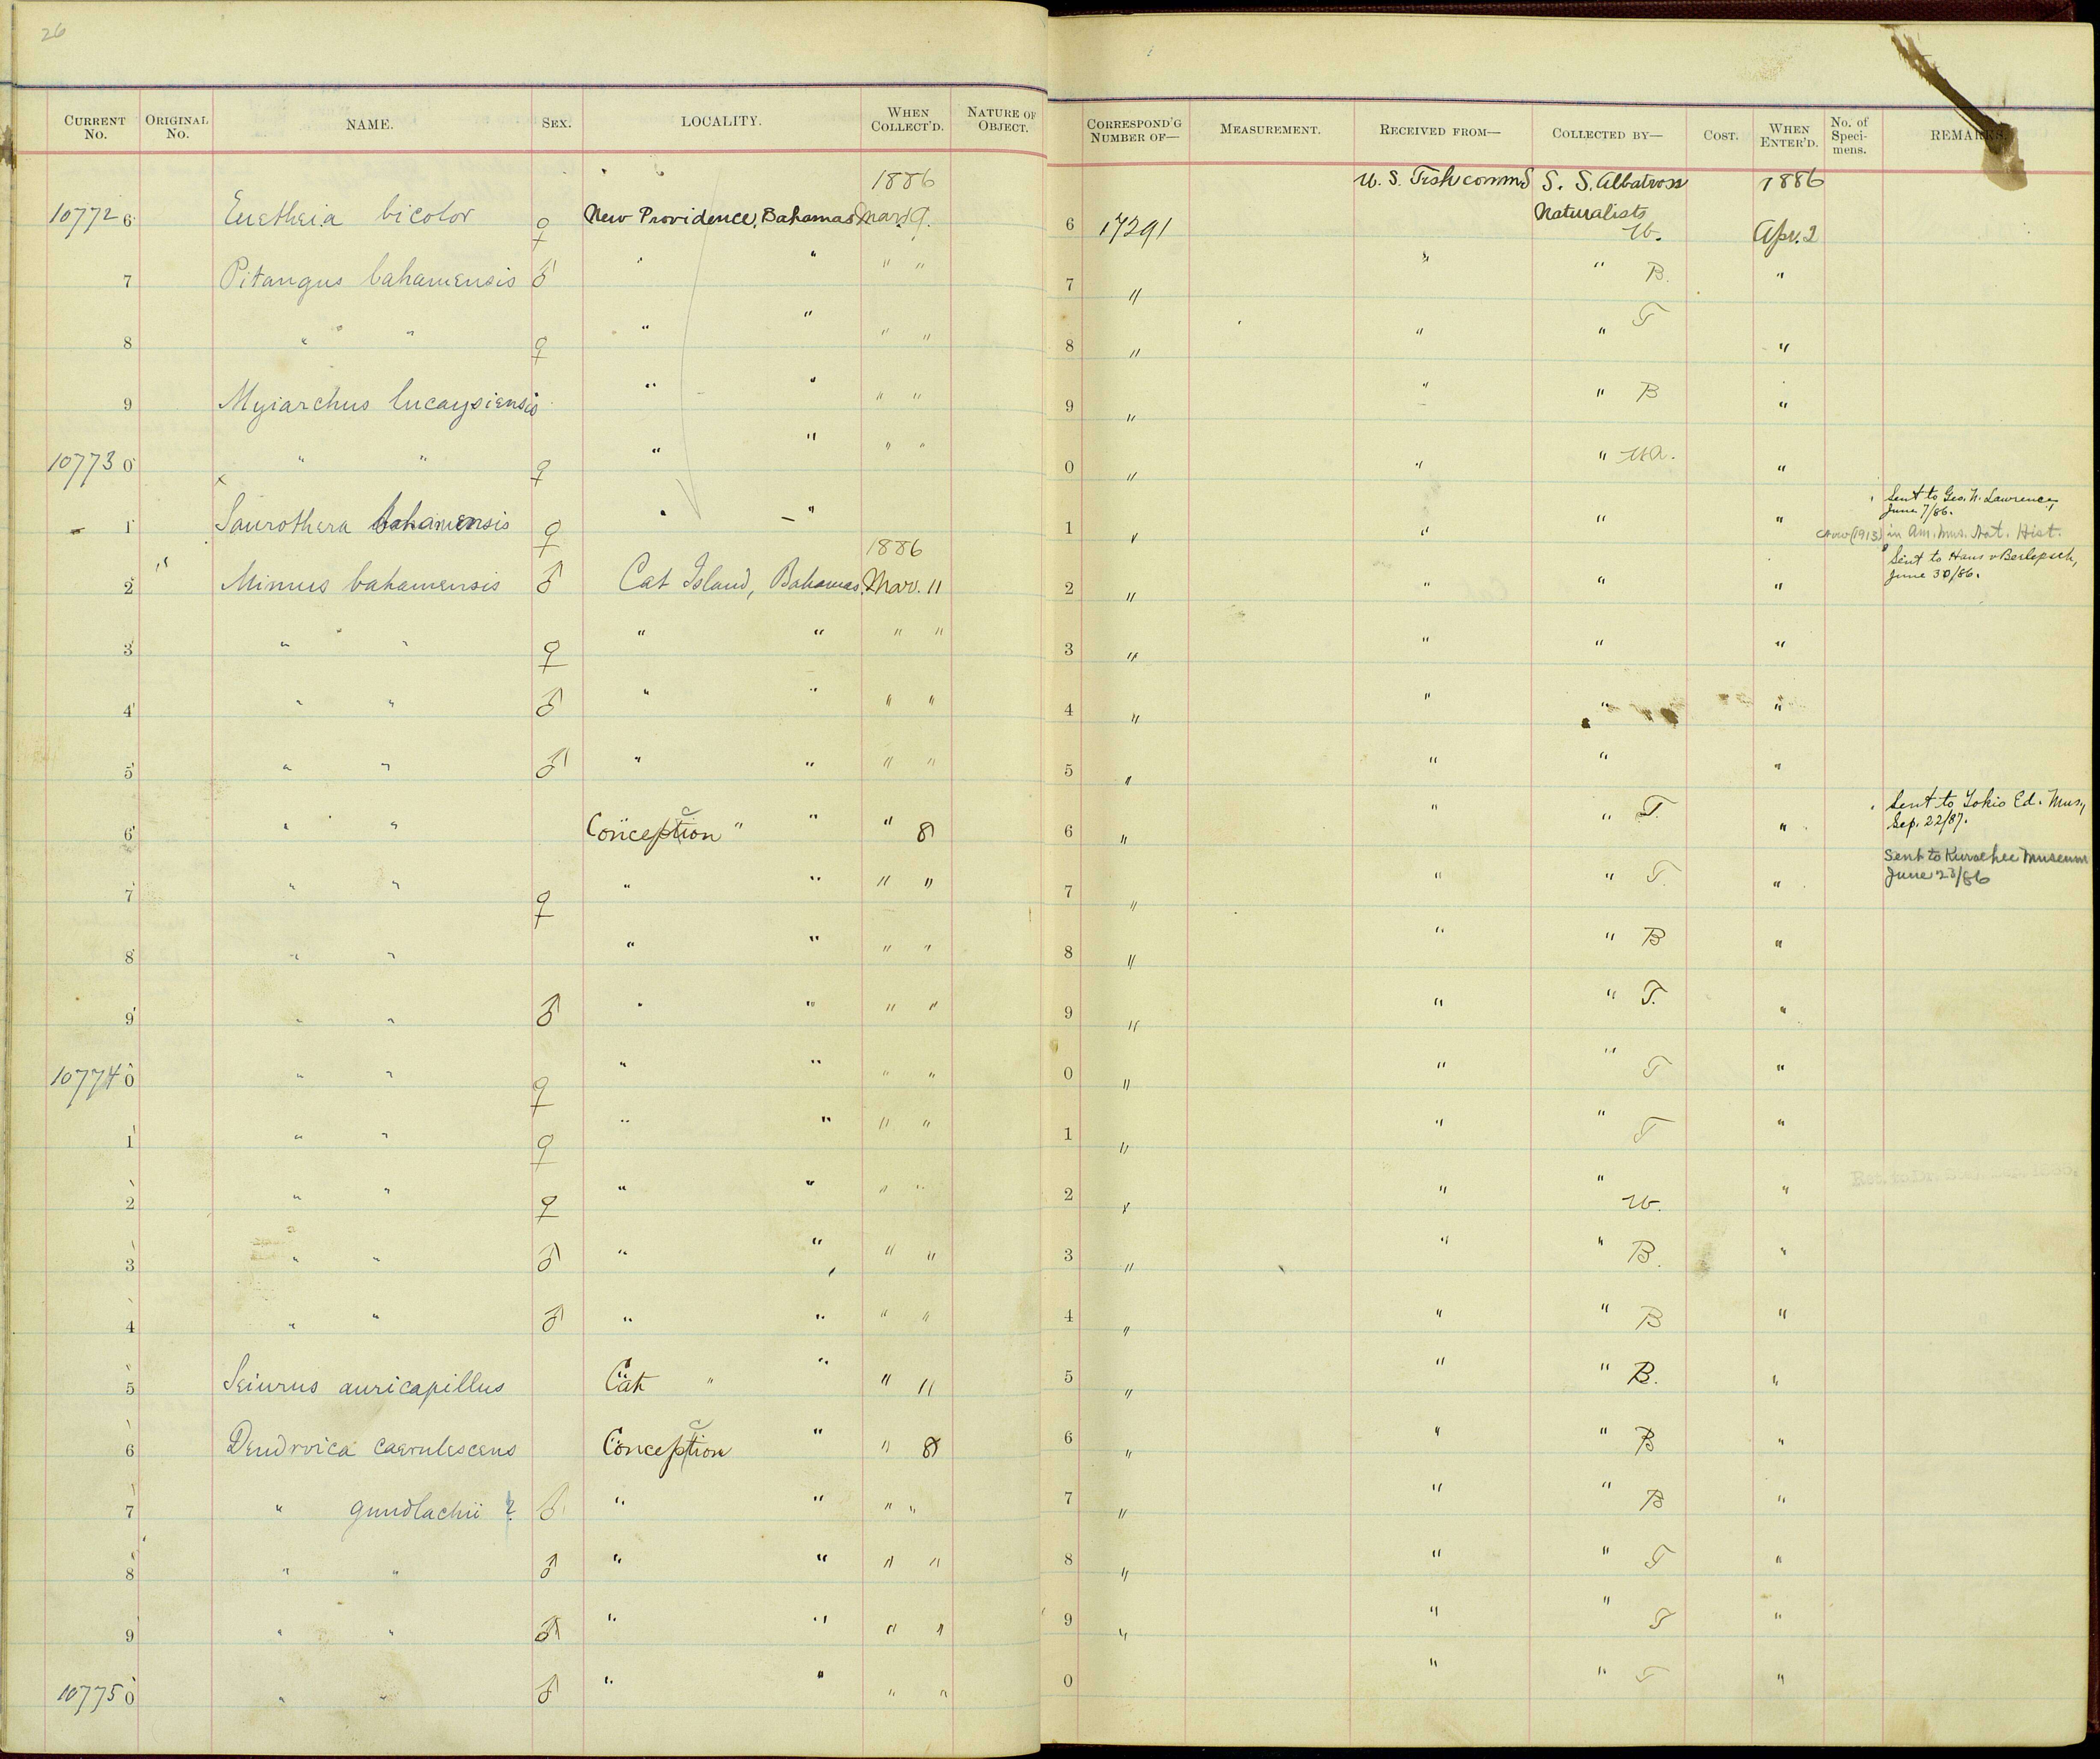 26
CURRENT No. ORIGINAL No. NAME. SEX. LOCALITY. WHEN COLLECT'D. NATURE OF OBJECT. CORRESPOND'G NUMBER OF— MEASUREMENT. RECEIVED FROM— COLLECTED BY— COST. WHEN ENTER'D. No. of Specimens. REMARKS.
1886 U. S. Fish commS S. S. Albatross 1886
Naturalists
107726 Euetheia bicolor ♀ New Providence, Bahamas Mar. 9. 6 17291 W. Apr. 2
7 Pitangus bahamensis ♂ " " " " 7 " " " B. "
8 " " ♀ " " " " 8 " " " T "
9 Myiarchus lucaysiensis " " " " 9 " " " B "
107730 " " ♀ " " " " 0 " " " "
x
1 Saurothera bahamensis ♀ " " 1 " " " " Sent to Geo. N. Lawrence, June 7/86.
Now (1913) in Am. Mus. Nat. Hist.
1886
2 Mimus bahamensis ♂ Cat Island, Bahamas. Mar. 11 2 " " " " Sent to Hans v Berlepsch, June 30/86.
3 " " ♀ " " " " 3 " " " "
4 " " ♂ " " " " 4 " " " "
5 " " ♂ " " " " 5 " " " "
6 " " Conception " " " 8 6 " " " T. " Sent to Tokio Ed. Mus., Sep. 22/87.
7 " " ♀ " " " " 7 " " " T. " Sent to Kurachee Museum June 23/86
8 " " " " " " 8 " " " B "
9 " " ♂ " " " " 9 " " " T. "
107740 " " ♀ " " " " 0 " " " T "
1 " " ♀ " " " " 1 " " " T "
2 " " ♀ " " " " 2 " " " W. "
3 " " ♂ " " " " 3 " " " B. "
4 " " ♂ " " " " 4 " " " B "
5 Seiurus auricapillus Cat " " " 11 5 " " " B. "
6 Dendroica caerulescens Conception " " 8 6 " " " B "
7 " gundlachii ? ♂ " " " " 7 " " " B "
8 " " ♂ " " " " 8 " " " T "
9 " " ♂ " " " " 9 " " " T "
107750 " " ♂ " " " " 0 " " T "